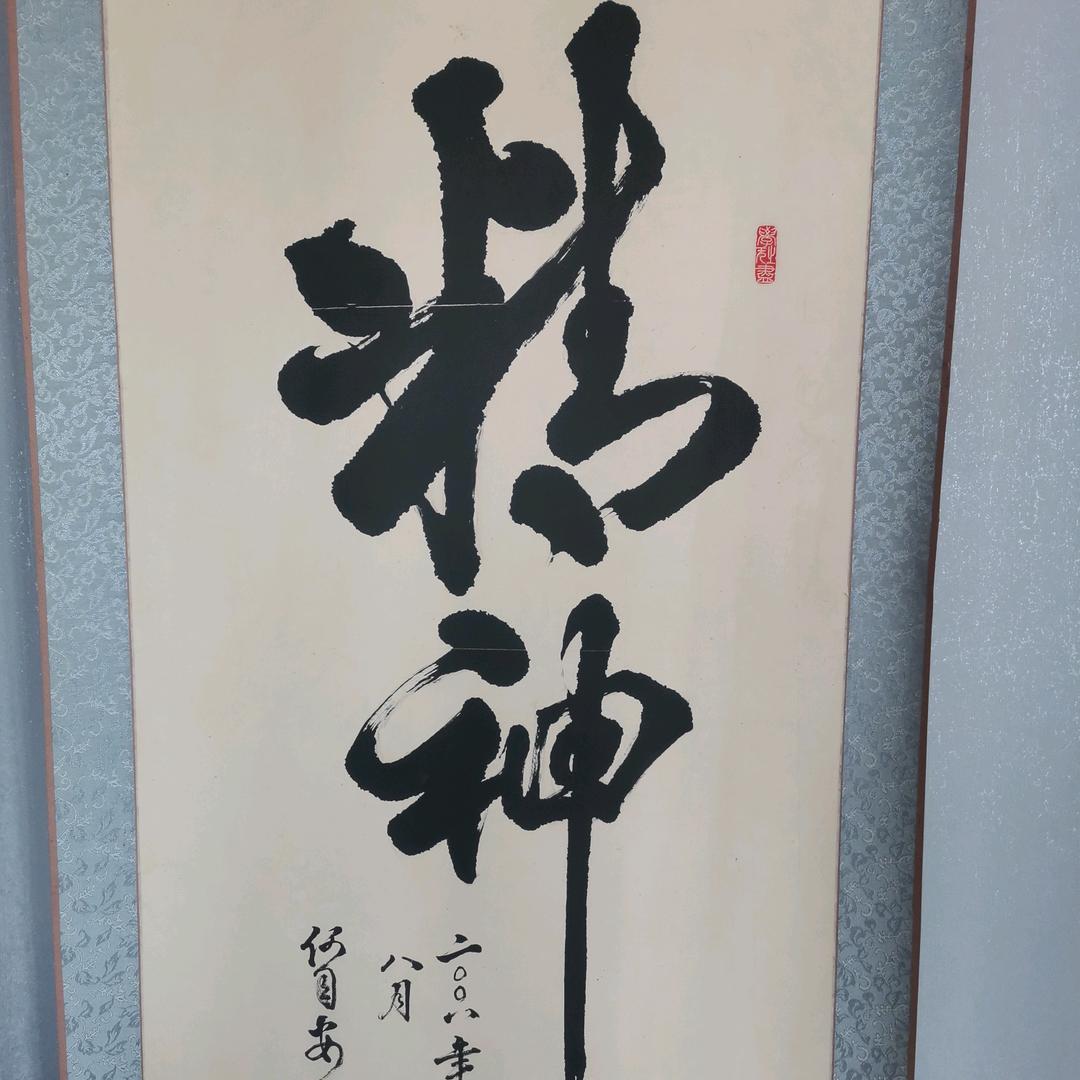 精神
二〇〇八年
八月
何目安